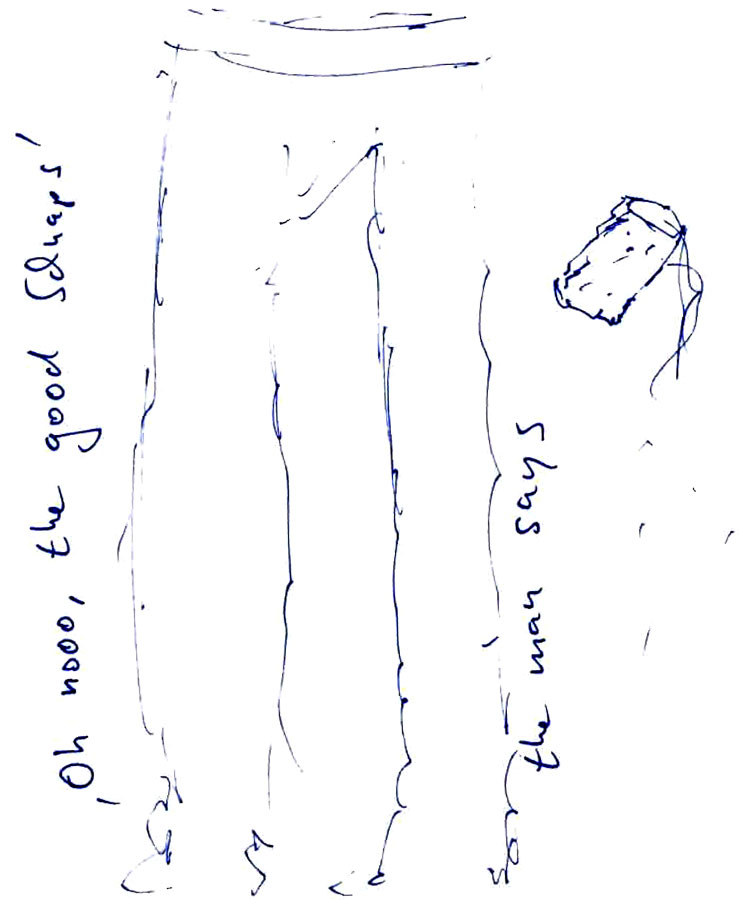 'Oh nooo, the good Schnaps'
the man says